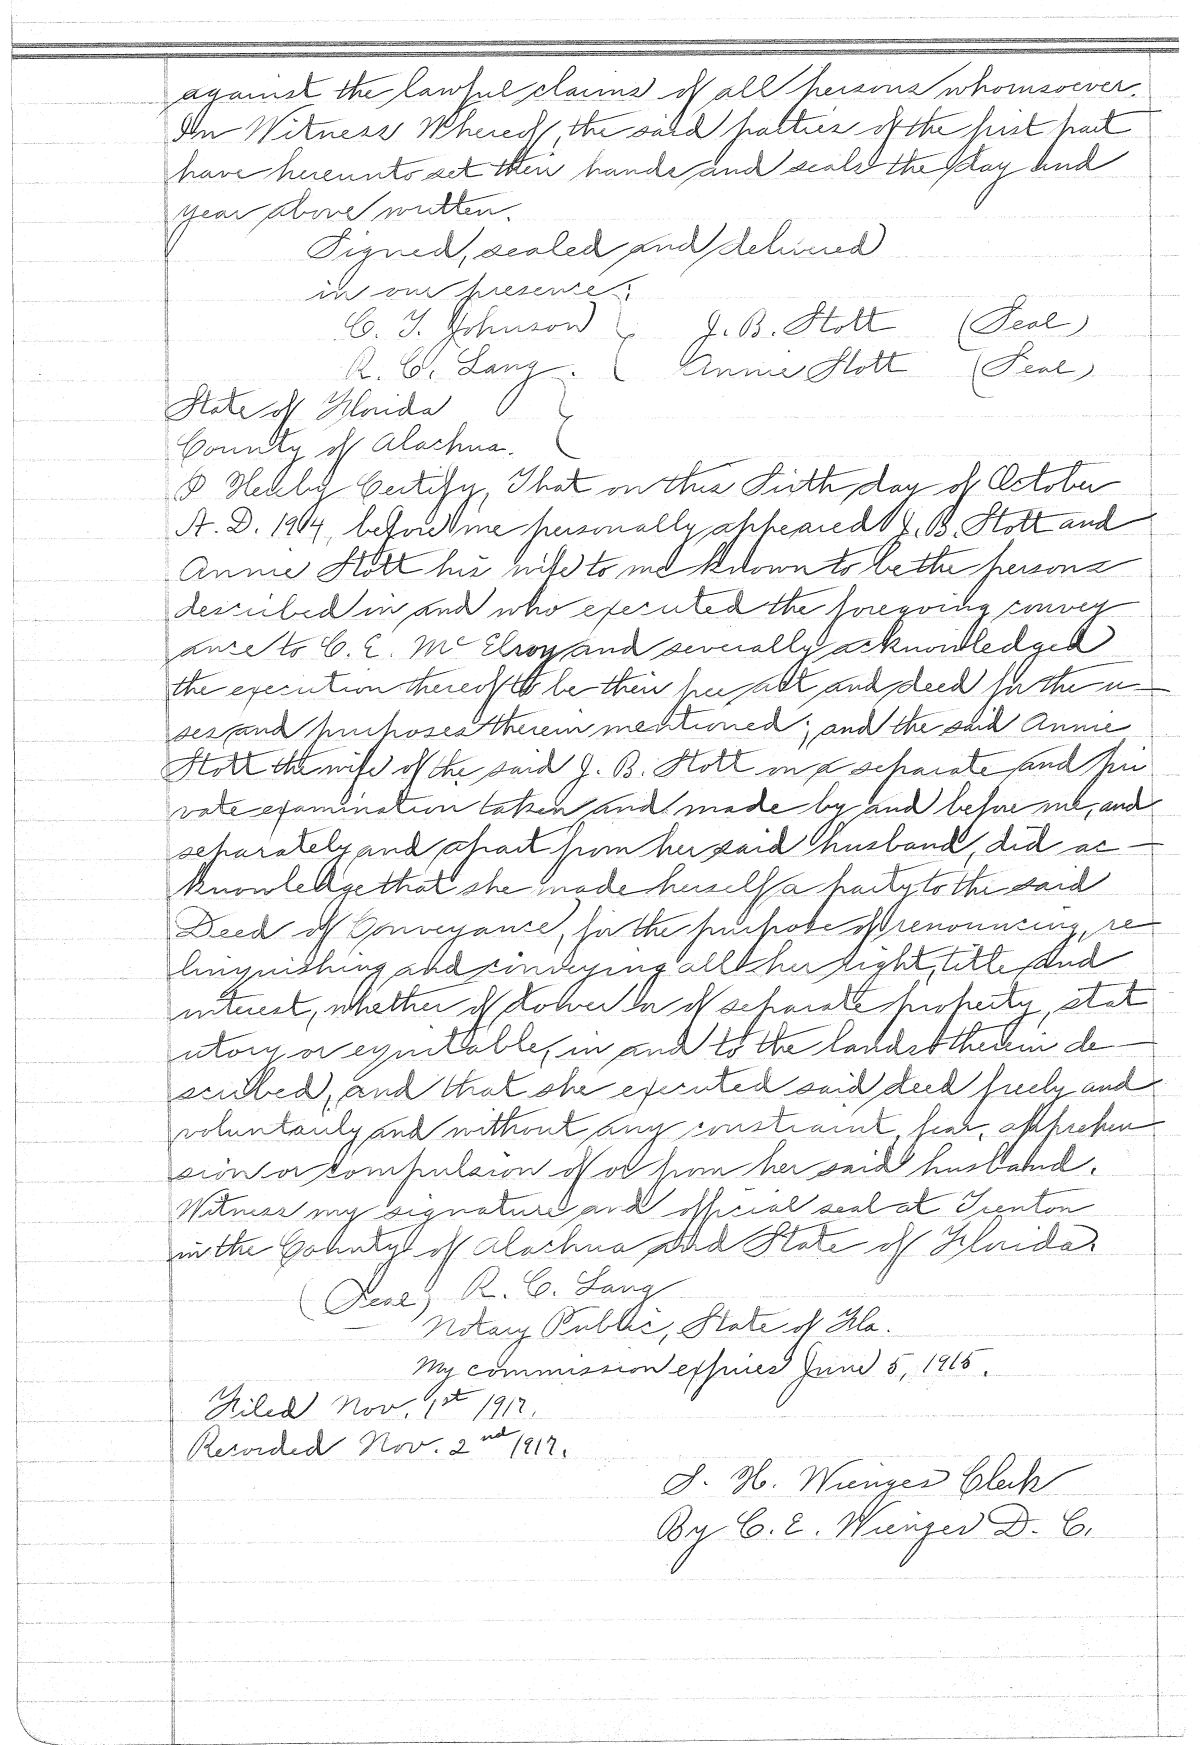 against the lawful claims of all persons whomsoever.
In Witness Whereof, the said parties of the first part
have hereunto set their hands and seals the day and
year above written.
Signed, sealed and delivered
in our presence:
C. T. Johnson J. B. Stott (Seal)
R. C. Lang. Annie Stott (Seal)
State of Florida
County of Alachua.
I Hereby Certify, That on this Sixth day of October
A. D. 1914, before me personally appeared J. B. Stott and
Annie Stott his wife to me known to be the persons
described in and who executed the foregoing convey
ance to C. E. McElroy and severally acknowledged
the execution thereof to be their free act and deed for the u—
ses and purposes therein mentioned; and the said Annie
Stott the wife of the said J. B. Stott on a separate and pri
vate examination taken and made by and before me, and
separately and apart from her said husband, did ac—
knowledge that she made herself a party to the said
Deed of Conveyance, for the purpose of renouncing, re
linquishing and conveying all her right, title and
interest, whether of dower or of separate property, stat
utory or equitable, in and to the lands therein de—
scribed, and that she executed said deed freely and
voluntarily and without any constraint, fear, apprehen
sion or compulsion of or from her said husband.
Witness my signature and official seal at Trenton
in the County of Alachua and State of Florida.
(Seal) R. C. Lang
Notary Public, State of Fla.
My commission expires June 5, 1915.
Filed Nov. 1st 1917.
Recorded Nov. 2nd 1917.
S. H. Wienges Clerk
By C. E. Wienges D. C.